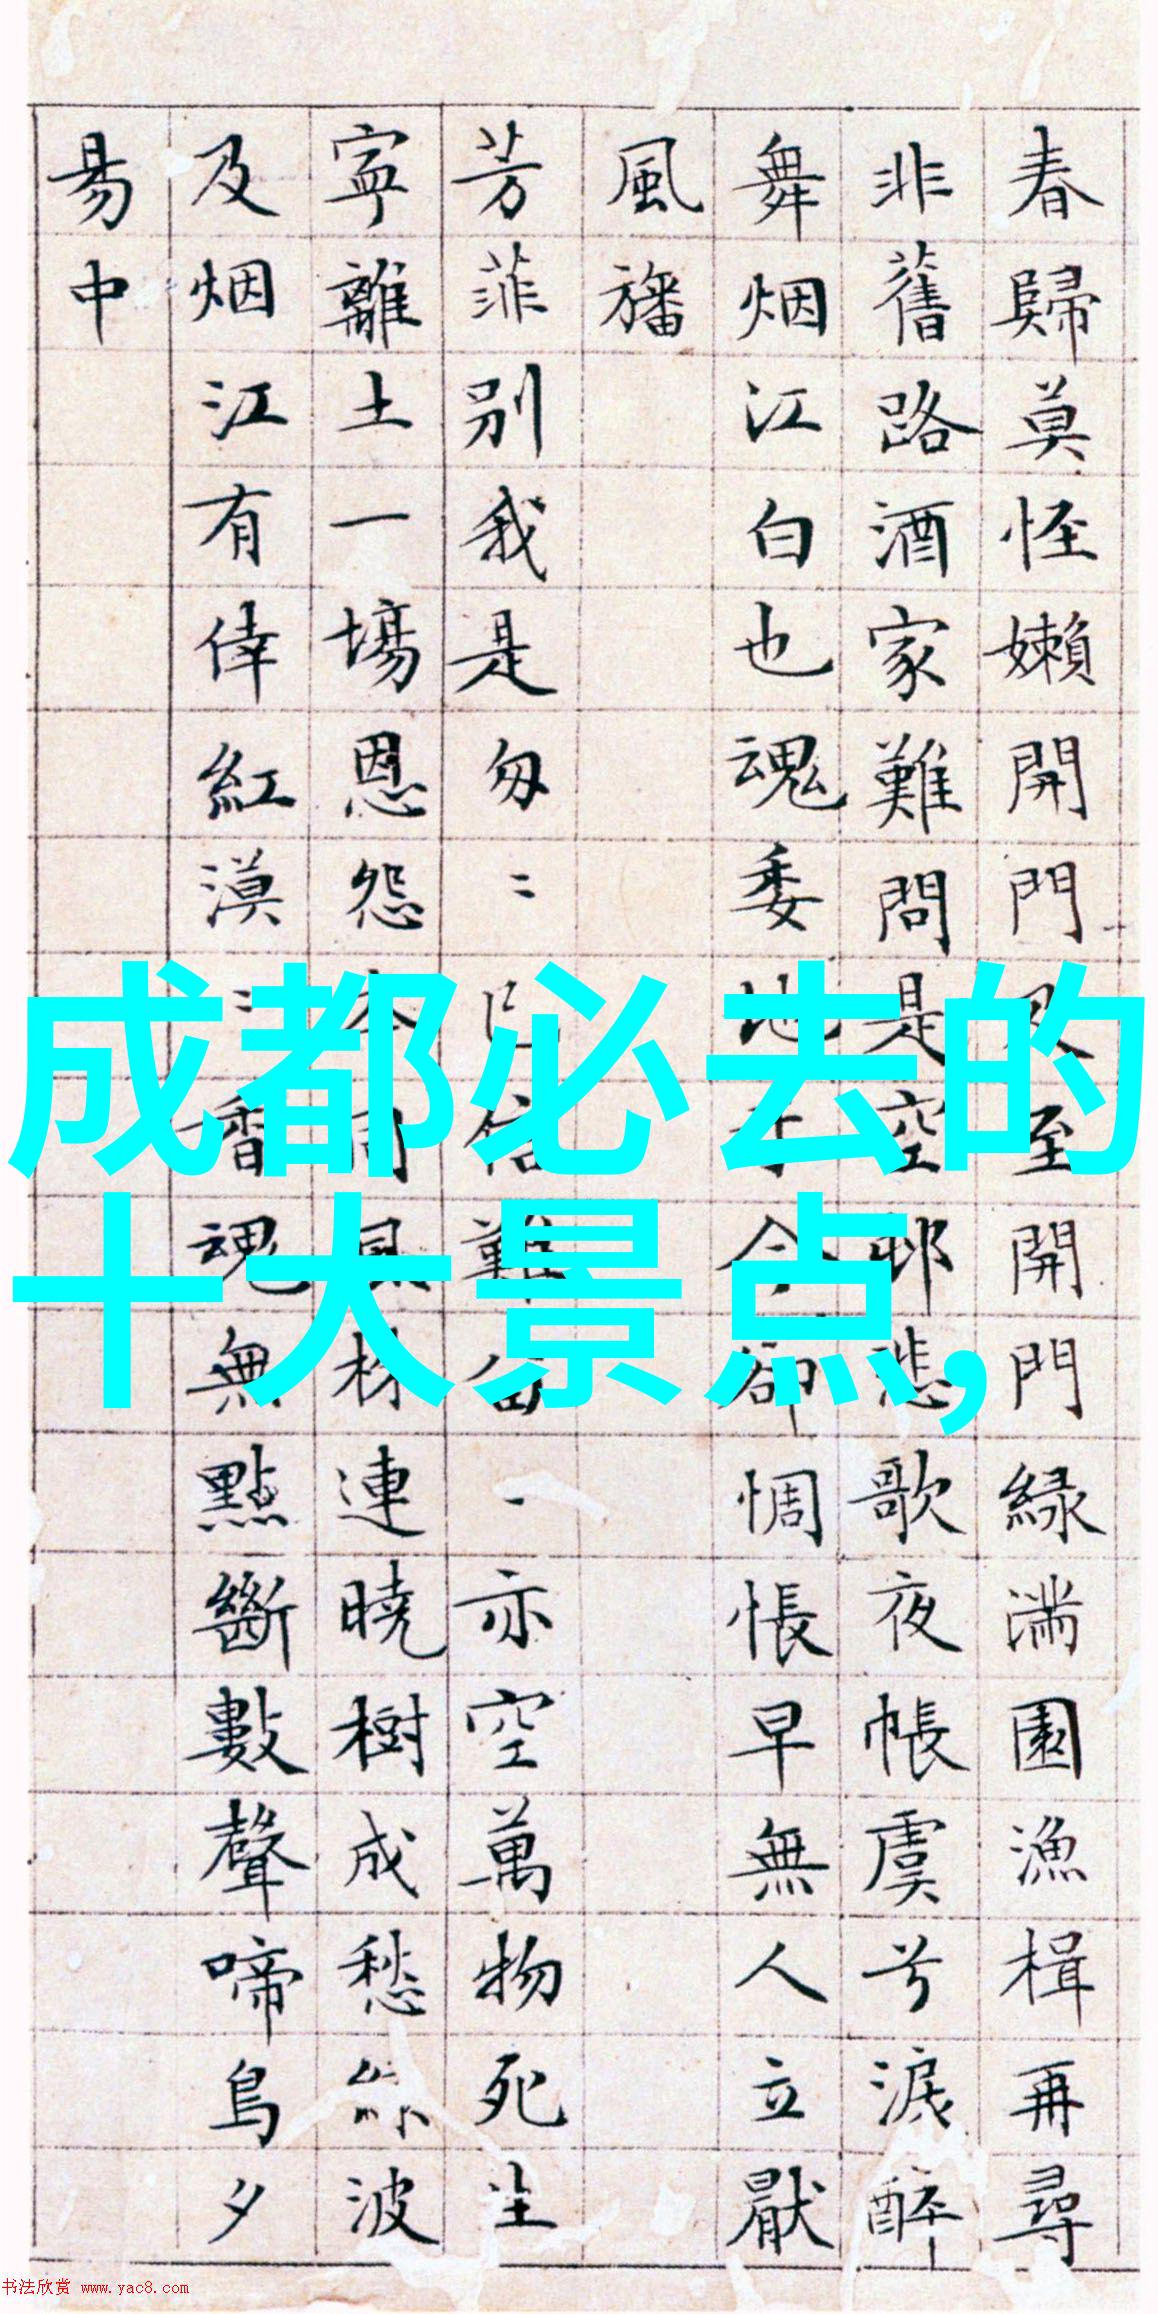 春歸莫怪嬾開門及至開門綠滿園漁楫再尋
非舊路酒家難問是空邨悲歌夜帳虞兮淚醉
舞烟江白也魂委地于今卻惆悵早無人立厭
風旛
芳菲別我是匆〻已信難留一亦空萬物死生
寧離土一場恩怨本同風株連曉樹成愁波
及烟江有倖紅漠〻香魂無點斷數聲啼鳥夕
易中
成都必去的
十大景点,
书法欣赏 www.yac8.com